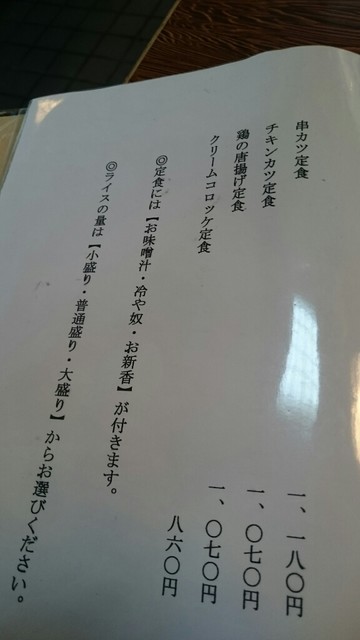 串カツ定食 一、一八〇円
チキンカツ定食 一、〇七〇円
鶏の唐揚げ定食 一、〇七〇円
クリームコロッケ定食 八六〇円
◎定食には【お味噌汁・冷や奴・お新香】が付きます。
◎ライスの量は【小盛り・普通盛り・大盛り】からお選びください。